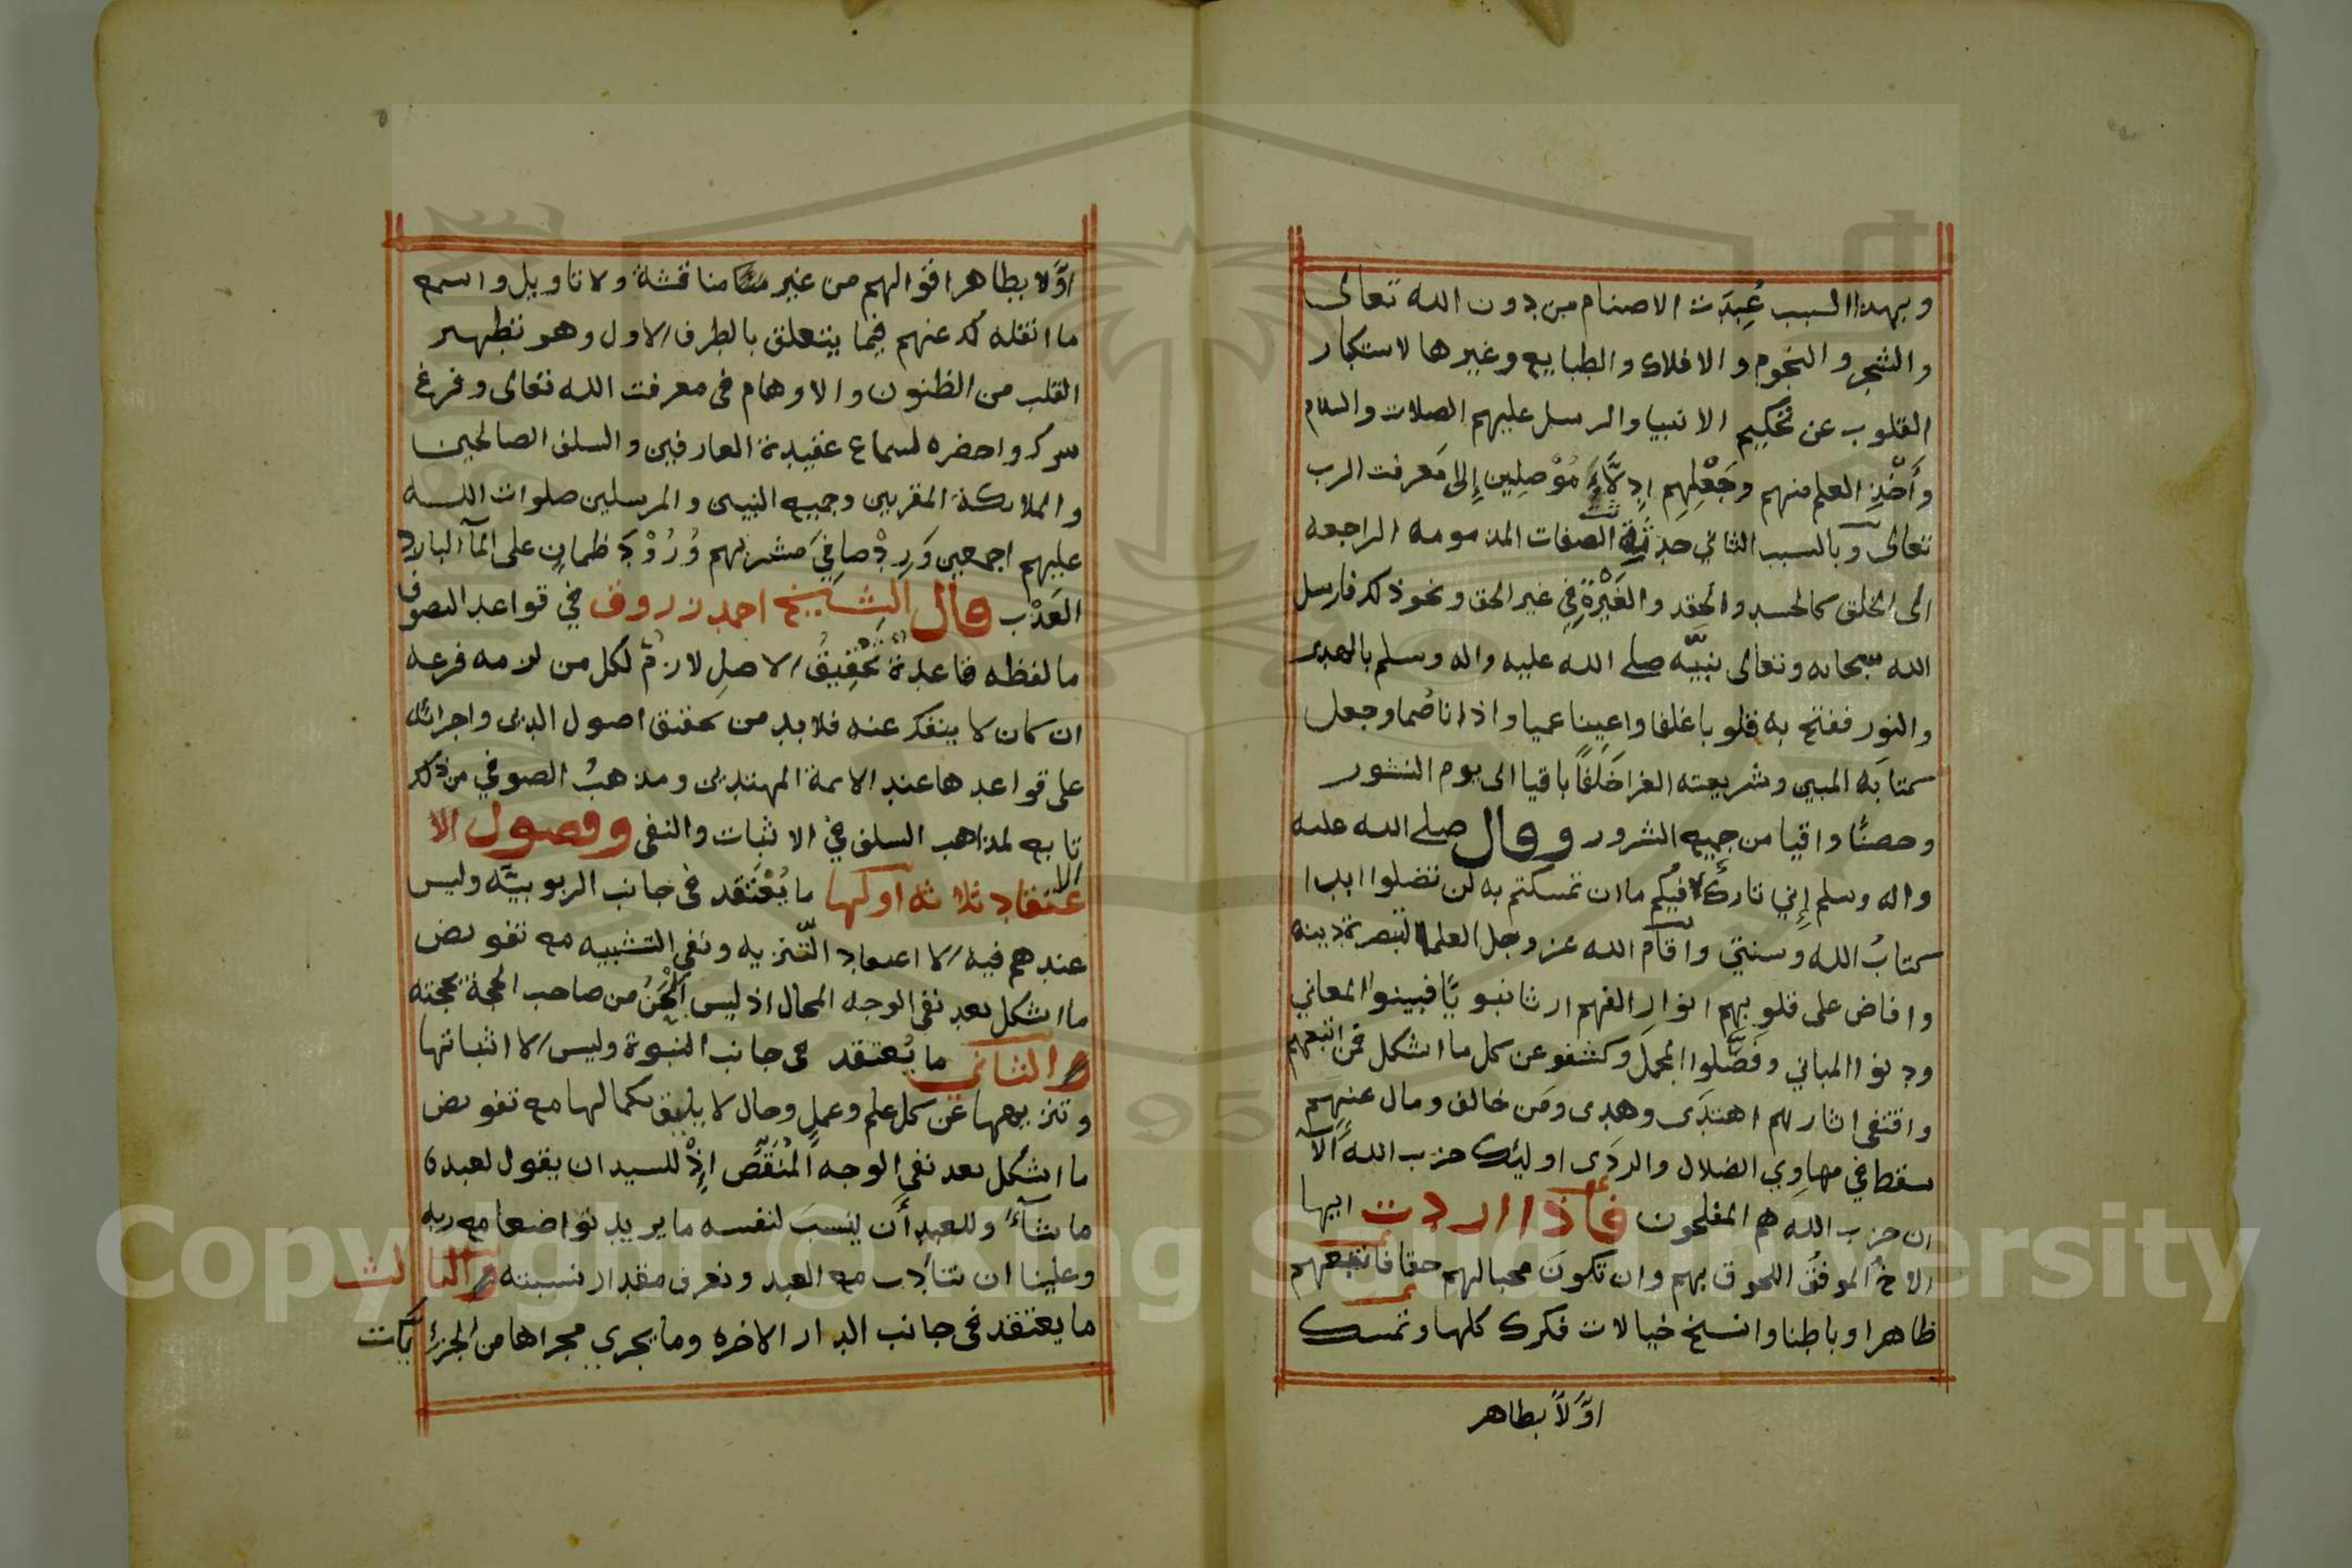 وبهذا السبب عُبِدَت الاصنام من دون الله تعالى
والشجر والنجوم والافلاك والطبايع وغيرها لاستكبار
القلوب عن تحكيم الانبيا والرسل عليهم الصلات والسلام
وأَخْذِ العلم منهم وجَعْلِهِم ادِلَّآءَ مُوْصِلِين إِلى مَعرفت الرب
تعالى وبالسبب الثاني حدثة الصفات المذمومه الراجعه
الى الخلق كالحسد والحقد والغَيْرَةِ فِي غير الحق ونحو ذلك فارسل
الله سبحانه وتعالى نبيَّه صلى الله عليه واله وسلم بالهدى
والنور ففتح به قلوبا غلفا واعينا عميا واذانا صُما وجعل
كتابَه المبين وشريعته الغرا خَلَفًا باقيا الى يوم النشور
وحصنًا واقيا من جميع الشرور وقال صلى الله عليه
واله وسلم إِني تارك فيكم ما ان تمسكتم به لن تضلوا ابدا
كتابُ الله وسنتي واقام الله عز وجل العلما لنصرة دينه
وافاض على قلوبهم انوار الفهم ارثا نبويًا فبينوا المعاني
ودنوا المباني وفَصَّلوا المجمل وكشفو عن كل ما اشكل فمن اتبعهم
واقتفى اثارهم اهتدَى وهدى ومَن خالف ومال عنهم
سقط في مهاوِي الضلال والردَى اوليئك حزب الله أَلآ
ان حزب الله هم المفلحون فأذا اردت ايها
الاخُ الموفقُ اللحوق بهم وان تكونَ محبا لهم حقا فاتبعهم
ظاهرا وباطنا وانسخ خيالات فكرك كلها وتمسك
اوَّلًا بظاهر
اوَّلا بظاهر اقوالهم من غير مناقشة ولا تاويل واسمع
ما انقله لك عنهم فيما يتعلق بالطرف الاول وهو تطهير
القلب من الظنون والاوهام في معرفت الله تعالى وفرغ
سرك واحضره لسماع عقيدة العارفين والسلف الصالحين
والملائكة المقربين وجميع النبيين والمرسلين صلوات الله
عليهم اجمعين وَرِدْ صافِيَ مشربهم وُرُوْدَ ظمانٍ على المآ البارد
العَذْب قال الشيخ احمد زروق في قواعد التصوف
ما لفظه قاعدة تحْقِيقُ الاصلِ لازمٌ لكل من لزمه فرعه
ان كان لا ينفك عنه فلا بد من تحقيق اصول الدين واجرائه
على قواعدها عند الائمة المهتدين ومذهبُ الصوفي من ذلك
تابع لمذاهب السلف في الاثبات والنفى وفصول الا
الاعتقاد ثلاثه اولها ما يُعْتَقد في جانب الربوبيَّه وليس
عندهم فيه الا اعتقاد التَّنزيه ونفي التشبيه مع تفويض
ما اشكل بعد نفى الوجه المحال اذ ليس أَلْحَنُ من صاحب الحجة بحجته
والثاني ما يُعتقد في جانب النبوة وليس الا اثباتها
وتنزيهها عن كل علم وعملٍ وحال لا يليق بكمالها مع تفويض
ما اشكل بعد نفى الوجه المُنَقِّص إِذْ للسيد ان يقول لعبده
ما شآءَ وللعبد أَن ينسبَ لنفسه ما يريد تواضعا مع ربه
وعلينا ان نتأدب مع العبد ونعرف مقدار نسبته والثالث
ما يعتقد في جانب الدار الاخره وما يجري مجراها من الجزئيآت